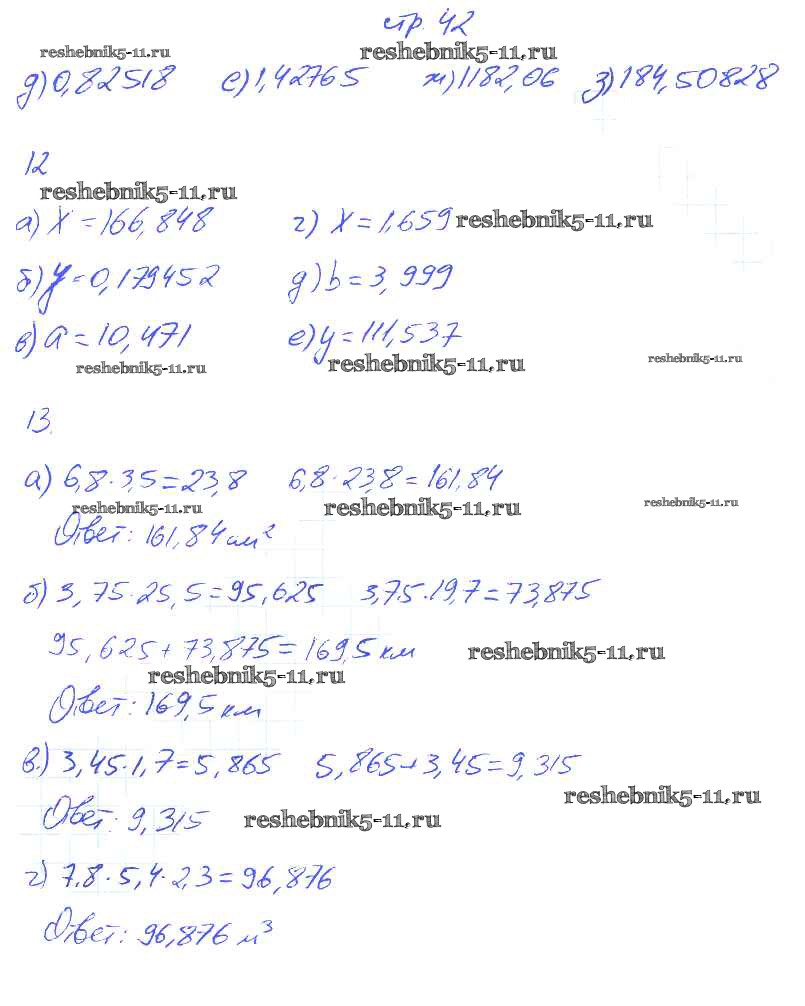 стр. 42
reshebnik5-11.ru reshebnik5-11.ru
д) 0,82518 е) 1,42765 ж) 1182,06 з) 184,50828
12
reshebnik5-11.ru
а) x = 166,848 г) x = 1,659 reshebnik5-11.ru
б) y = 0,179452 д) b = 3,999
в) a = 10,471 е) y = 111,537
reshebnik5-11.ru reshebnik5-11.ru reshebnik5-11.ru
13.
а) 6,8 · 3,5 = 23,8 6,8 · 23,8 = 161,84
reshebnik5-11.ru reshebnik5-11.ru reshebnik5-11.ru
Ответ: 161,84 см²
б) 3,75 · 25,5 = 95,625 3,75 · 19,7 = 73,875
95,625 + 73,875 = 169,5 км reshebnik5-11.ru
reshebnik5-11.ru
Ответ: 169,5 км
в.) 3,45 · 1,7 = 5,865 5,865 + 3,45 = 9,315
reshebnik5-11.ru
Ответ: 9,315 reshebnik5-11.ru
г) 7,8 · 5,4 · 2,3 = 96,876
Ответ: 96,876 м³